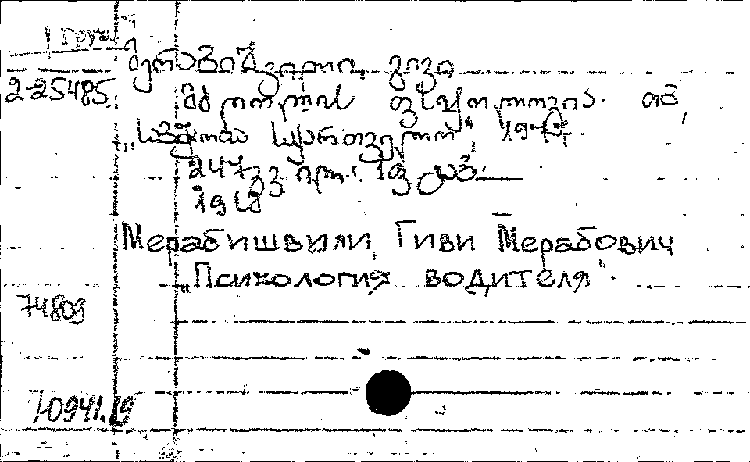 Груз
2-25485
მერაბიშვილი, გივი
მძღოლის ფსიქოლოგია. თბ.,
„საბჭოთა საქართველო",
247 გვ.
Мерабишвили, Гиви Мерабович
„Психология водителя".
74809
70941.19